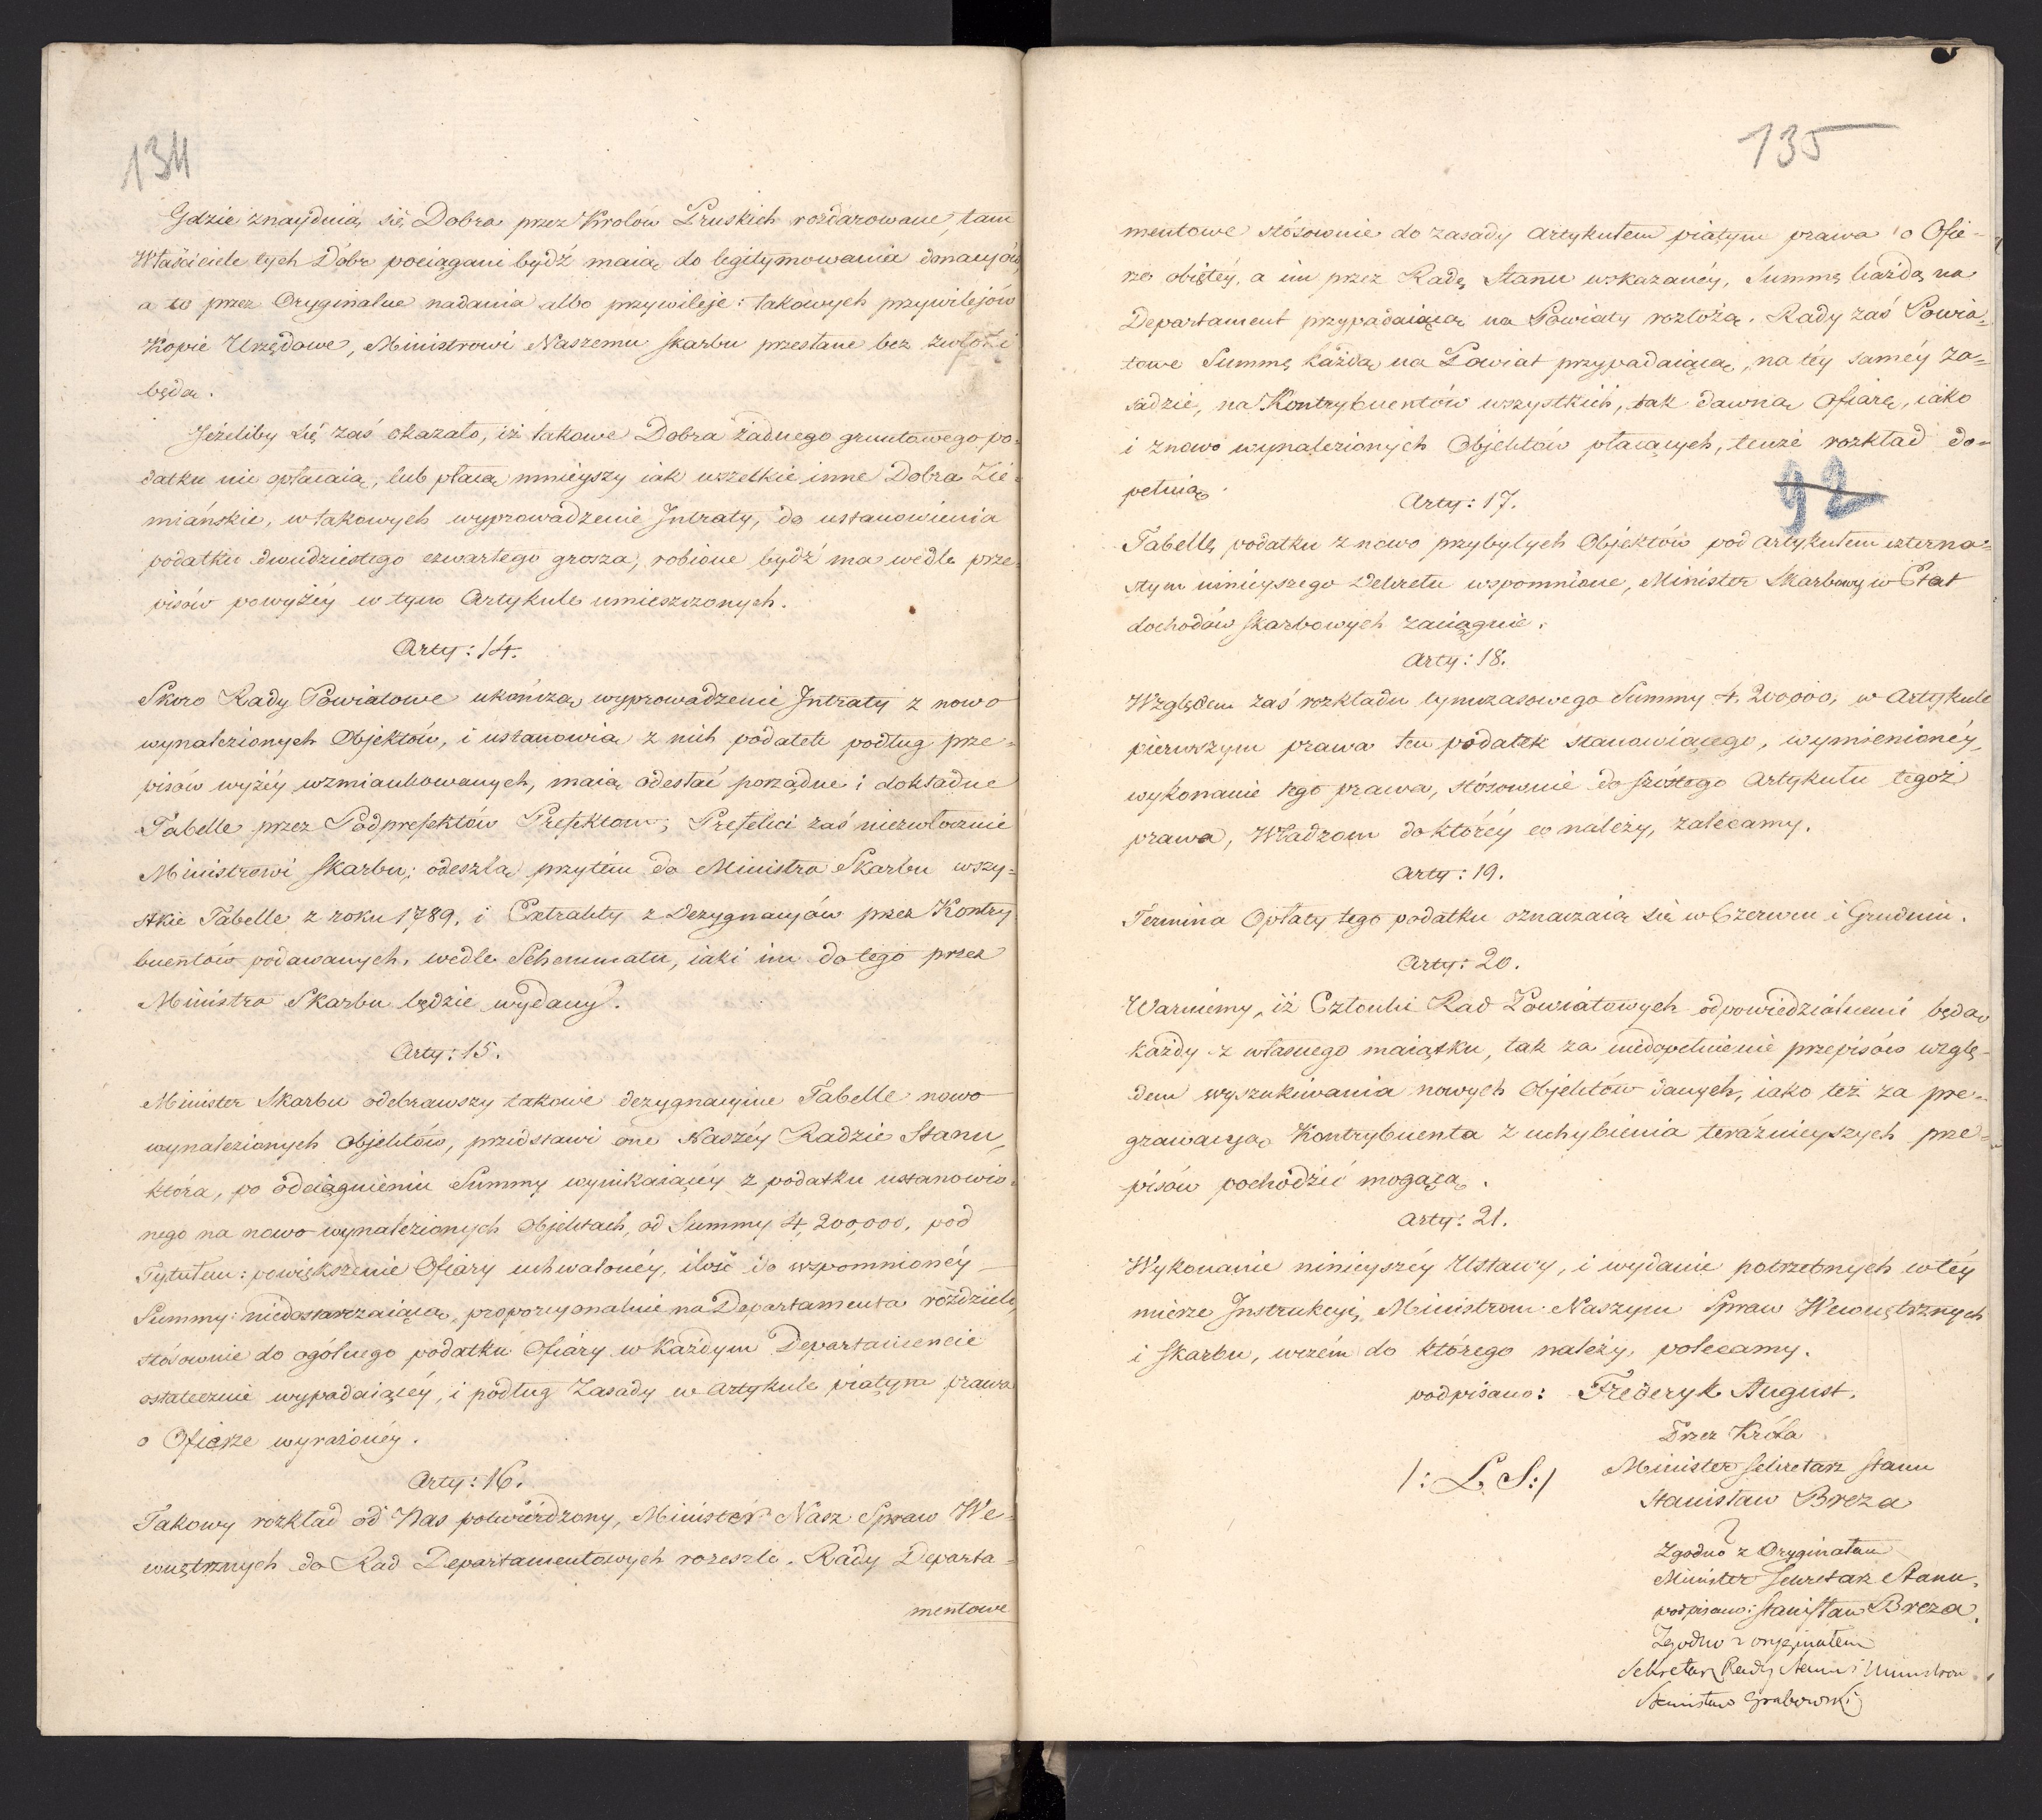 134
Gdzie znayduią się Dobra przez Krolów Pruskich rozdarowane, tam
Właściciele tych Dóbr pociągani bydź maią do legitymowania donacyów,
a to przez Oryginalne nadania albo przywileje: takowych przywilejów
Kopie Urzędowe, Ministrowi Naszemu Skarbu przesłane bez zwłoki
będą.
Jeżeliby się zaś okazało, iż takowe Dobra żadnego gruntowego po=
datku nie opłacaią, lub płacą mnieyszy iak wszelkie inne Dobra Zie=
miańskie, w takowych wyprowadzenie Intraty, do ustanowienia
podatku dwudziestego czwartego grosza, robione bydź ma wedle prze=
pisów powyżéy w tym Artykule umieszczonych.
Arty: 14.
Skoro Rady Powiatowe ukończą wyprowadzenie Intraty z nowo
wynalezionych Objektów, i ustanowią z nich podatek podług prze=
pisów wyżéy wzmiankowanych, maią odesłać porządne i dokładne
Tabelle przez Podprefektów Prefektom; Prefekci zaś niezwłocznie
Ministrowi Skarbu; odeszlą przytém do Ministra Skarbu wszy=
stkie Tabelle z roku 1789, i Extrakty z Dezygnacyów przez Kontry
buentów podawanych, wedle Schemmatu, iaki im do tego przez
Ministra Skarbu będzie wydany.
Arty: 15.
Minister Skarbu odebrawszy takowe dezygnacyine Tabelle nowo
wynalezionych Objektów, przedstawi one Naszéy Radzie Stanu,
która, po odciągnieniu Summy wynikaiącéy z podatku ustanowio=
nego na nowo wynalezionych Objektach, od Summy 4,200,000, pod
Tytułem: powiększenie Ofiary uchwalonéy, ilość do wspomnionéy
Summy: niedostarczaiącą, proporcyonalnie na Departamenta rozdzieli,
stósownie do ogólnego podatku Ofiáry w każdym Departamencie
ostatecznie wypadaiącéy, i podług Zasady w Artykule piątym prawa
o Ofierze wyrażonéy.
Arty: 16.
Takowy rozkład od Nas potwierdzony, Minister Nasz Spraw We=
wnętrznych do Rad Departamentowych rozeszle. Rady Departa=
mentowe
135
mentowe stósownie do zasady Artykułem piątym prawa o Ofie=
rze obiętéy, a im przez Radę Stanu wskazanéy, Summę każdą na
Departament przypadaiącą na Powiaty rozłożą. Rady zaś Powia=
towe Summę każdą na Powiat przypadaiącą, na téy saméy za=
sadzie, na Kontrybuentów wszystkich, tak dawną Ofiarę, iako
i znowo wynalezionych Objektów płacących, tenże rozkład do=
pełnią.
92
Arty: 17.
Tabellę podatku z nowo przybyłych Objektów pod artykułem czterna=
stym ninieyszego Dekretu wspomnione, Minister Skarbowy w Etat
dochodów Skarbowych zaciągnie.
Arty: 18.
Względem zaś rozkładu tymczasowego Summy 4,200,000, w Artykule
pierwszym prawa ten podatek stanowiącego, wymienionéy,
wykonanie tego prawa, stósownie do szóstego Artykułu tegoż
prawa, Władzom do któréy co należy, zalecamy.
Arty: 19.
Termina Opłaty tego podatku oznaczaią się w Czerwcu i Grudniu.
Arty: 20.
Waruiemy, iż Członki Rad Powiatowych odpowiedzialnemi będą
każdy z własnego maiątku, tak za niedopełnienie przepisów wzglę=
dem wyszukiwania nowych Objektów danych, iako też za pre=
grawacyą Kontrybuenta z uchybienia teraźnieyszych prze=
pisów pochodzić mogącą.
Arty: 21.
Wykonanie ninieyszéy Ustawy, i wydanie potrzebnych w téy
mierze Instrukcyi, Ministrom Naszym Spraw Wewnętrznych
i Skarbu, wczém do którego należy, polecamy.
podpisano: Frederyk August.
Przez Króla
/: L. S:/
Minister Sekretarz Stanu
Stanisław Breza
Zgodno z Oryginałem
Minister Sekretarz Stanu.
podpisano: Stanisław Breza.
Zgodno z oryginałem
Sekretarz Rady Stanu i Ministrów
Stanisław Grabowski